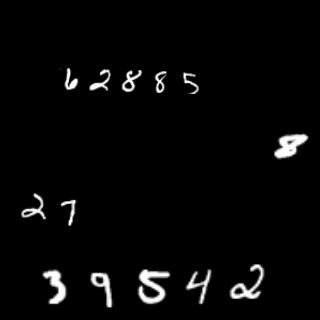 62885
8
27
39542